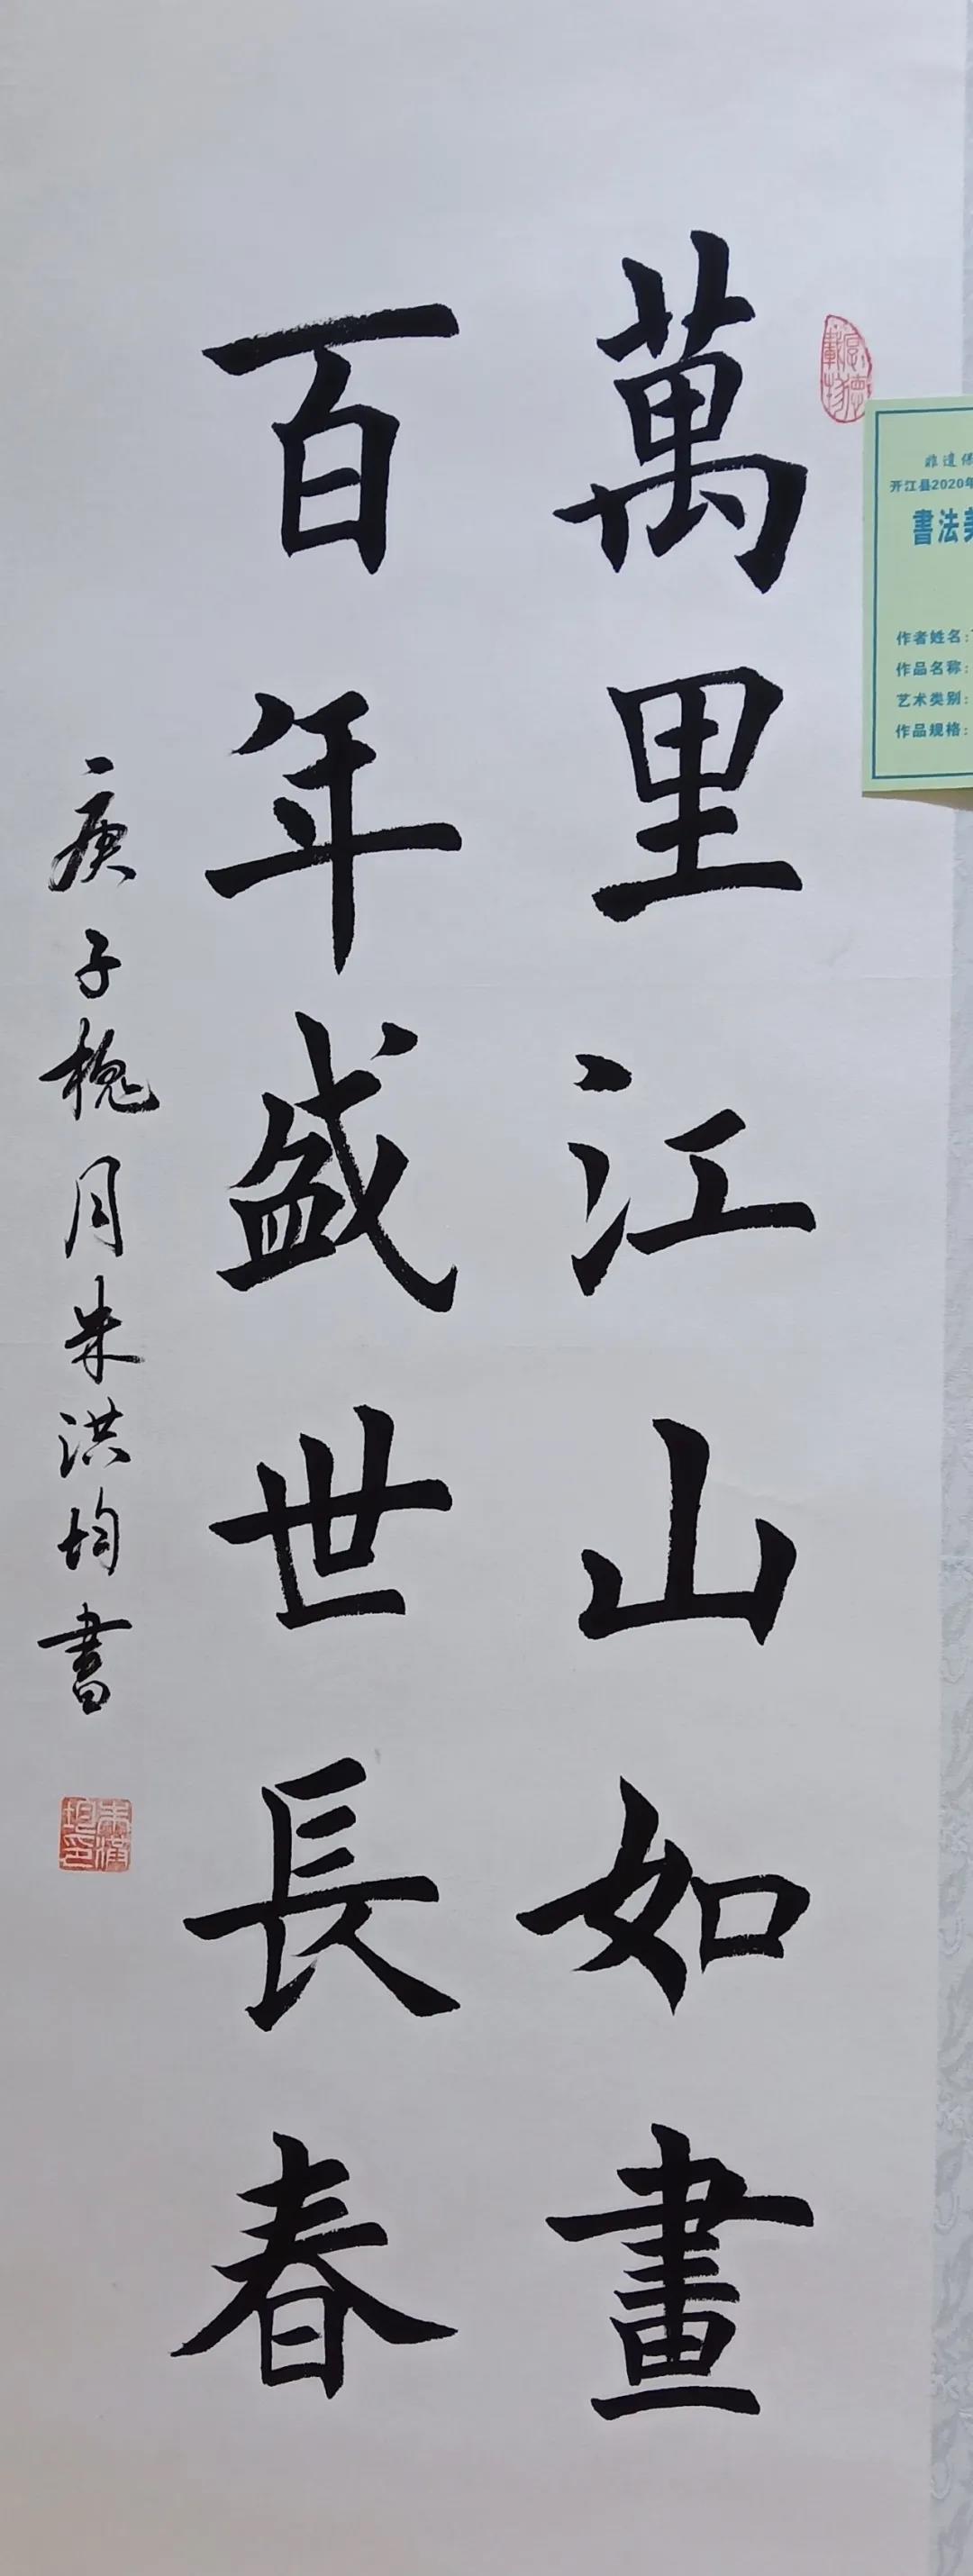 萬里江山如畫
百年盛世長春
庚子槐月朱洪均書
厚德載物
朱洪均印
非遺
开江县2020年
書法美
作者姓名:
作品名称:
艺术类别:
作品规格: